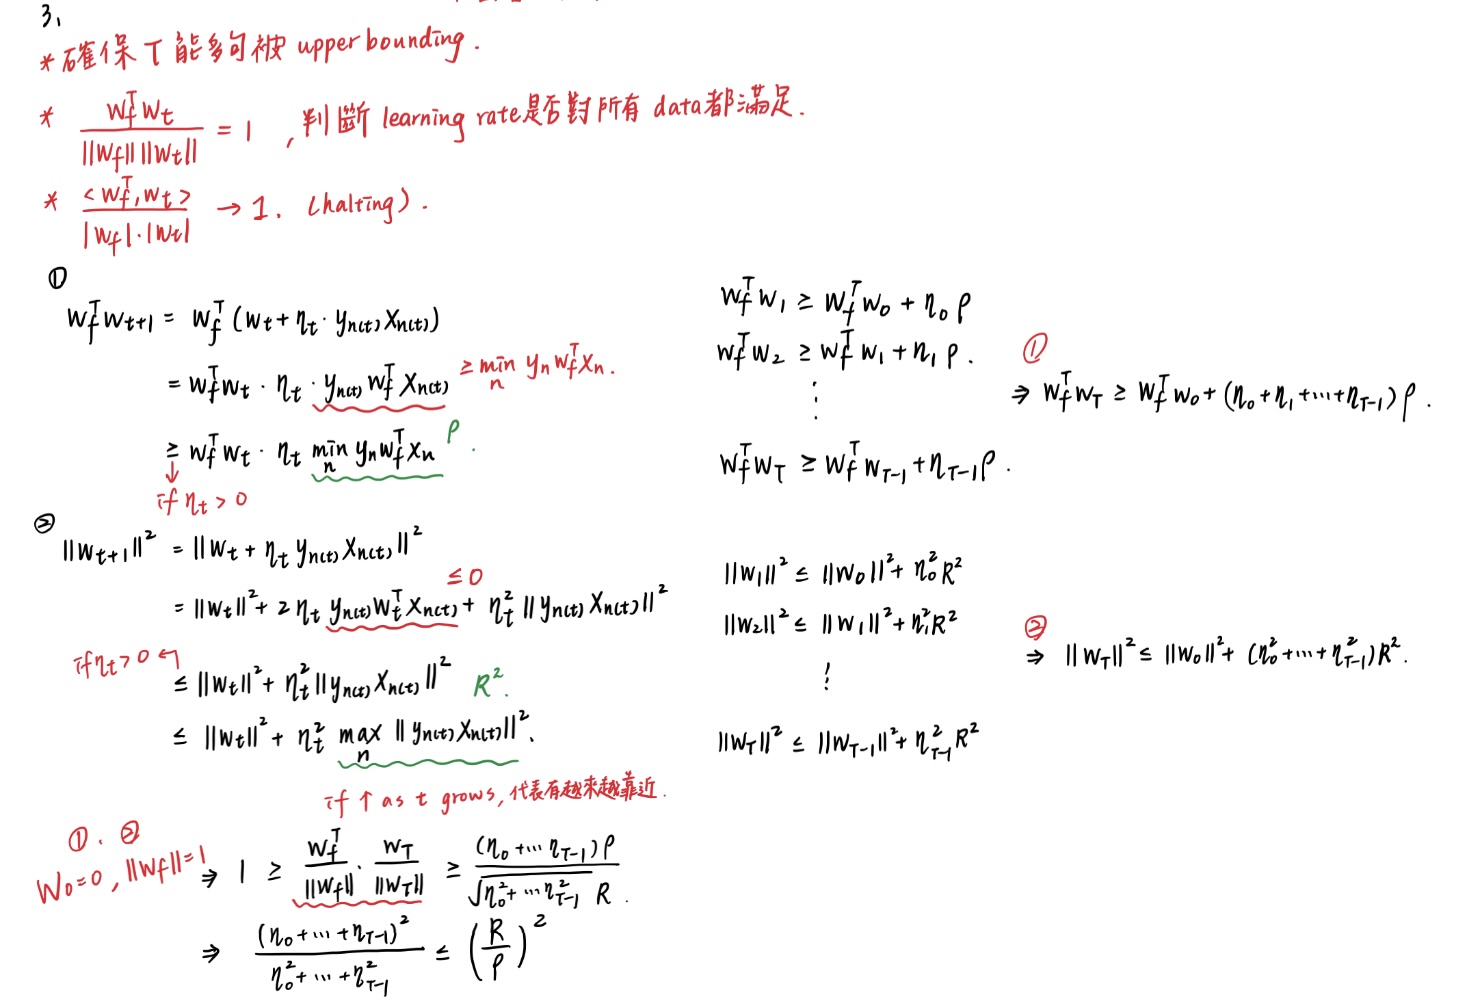 3.
* 確保 T 能夠被 upper bounding.
* w_f^T w_t / ||w_f|| ||w_t|| = 1 , 判斷 learning rate是否對所有 data都滿足.
* <w_f^T, w_t> / |w_f|·|w_t| → 1. (halting).
①
w_f^T w_{t+1} = w_f^T (w_t + η_t · y_{n(t)} x_{n(t)})
= w_f^T w_t · η_t · y_{n(t)} w_f^T x_{n(t)} ≥ min_n y_n w_f^T x_n.
≥ w_f^T w_t · η_t min_n y_n w_f^T x_n ρ.
↓
if η_t > 0
w_f^T w_1 ≥ w_f^T w_0 + η_0 ρ
w_f^T w_2 ≥ w_f^T w_1 + η_1 ρ.
⋮
w_f^T w_T ≥ w_f^T w_{T-1} + η_{T-1} ρ.
①
⇒ w_f^T w_T ≥ w_f^T w_0 + (η_0 + η_1 + ... + η_{T-1}) ρ.
②
||w_{t+1}||^2 = ||w_t + η_t y_{n(t)} x_{n(t)}||^2
≤ 0
= ||w_t||^2 + 2 η_t y_{n(t)} w_t^T x_{n(t)} + η_t^2 ||y_{n(t)} x_{n(t)}||^2
if η_t > 0 ↰
≤ ||w_t||^2 + η_t^2 ||y_{n(t)} x_{n(t)}||^2 R^2.
≤ ||w_t||^2 + η_t^2 max_n ||y_{n(t)} x_{n(t)}||^2.
||w_1||^2 ≤ ||w_0||^2 + η_0^2 R^2
||w_2||^2 ≤ ||w_1||^2 + η_1^2 R^2
⋮
||w_T||^2 ≤ ||w_{T-1}||^2 + η_{T-1}^2 R^2
②
⇒ ||w_T||^2 ≤ ||w_0||^2 + (η_0^2 + ... + η_{T-1}^2) R^2.
if ↑ as t grows, 代表有越來越靠近.
①. ②
w_0 = 0, ||w_f|| = 1 ⇒ 1 ≥ w_f^T / ||w_f|| · w_T / ||w_T|| ≥ (η_0 + ... η_{T-1}) ρ / √(η_0^2 + ... η_{T-1}^2) R.
⇒ (η_0 + ... + η_{T-1})^2 / η_0^2 + ... + η_{T-1}^2 ≤ (R/ρ)^2